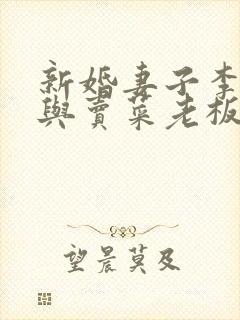 新婚妻子李
與賣菜老板
望晨莫及